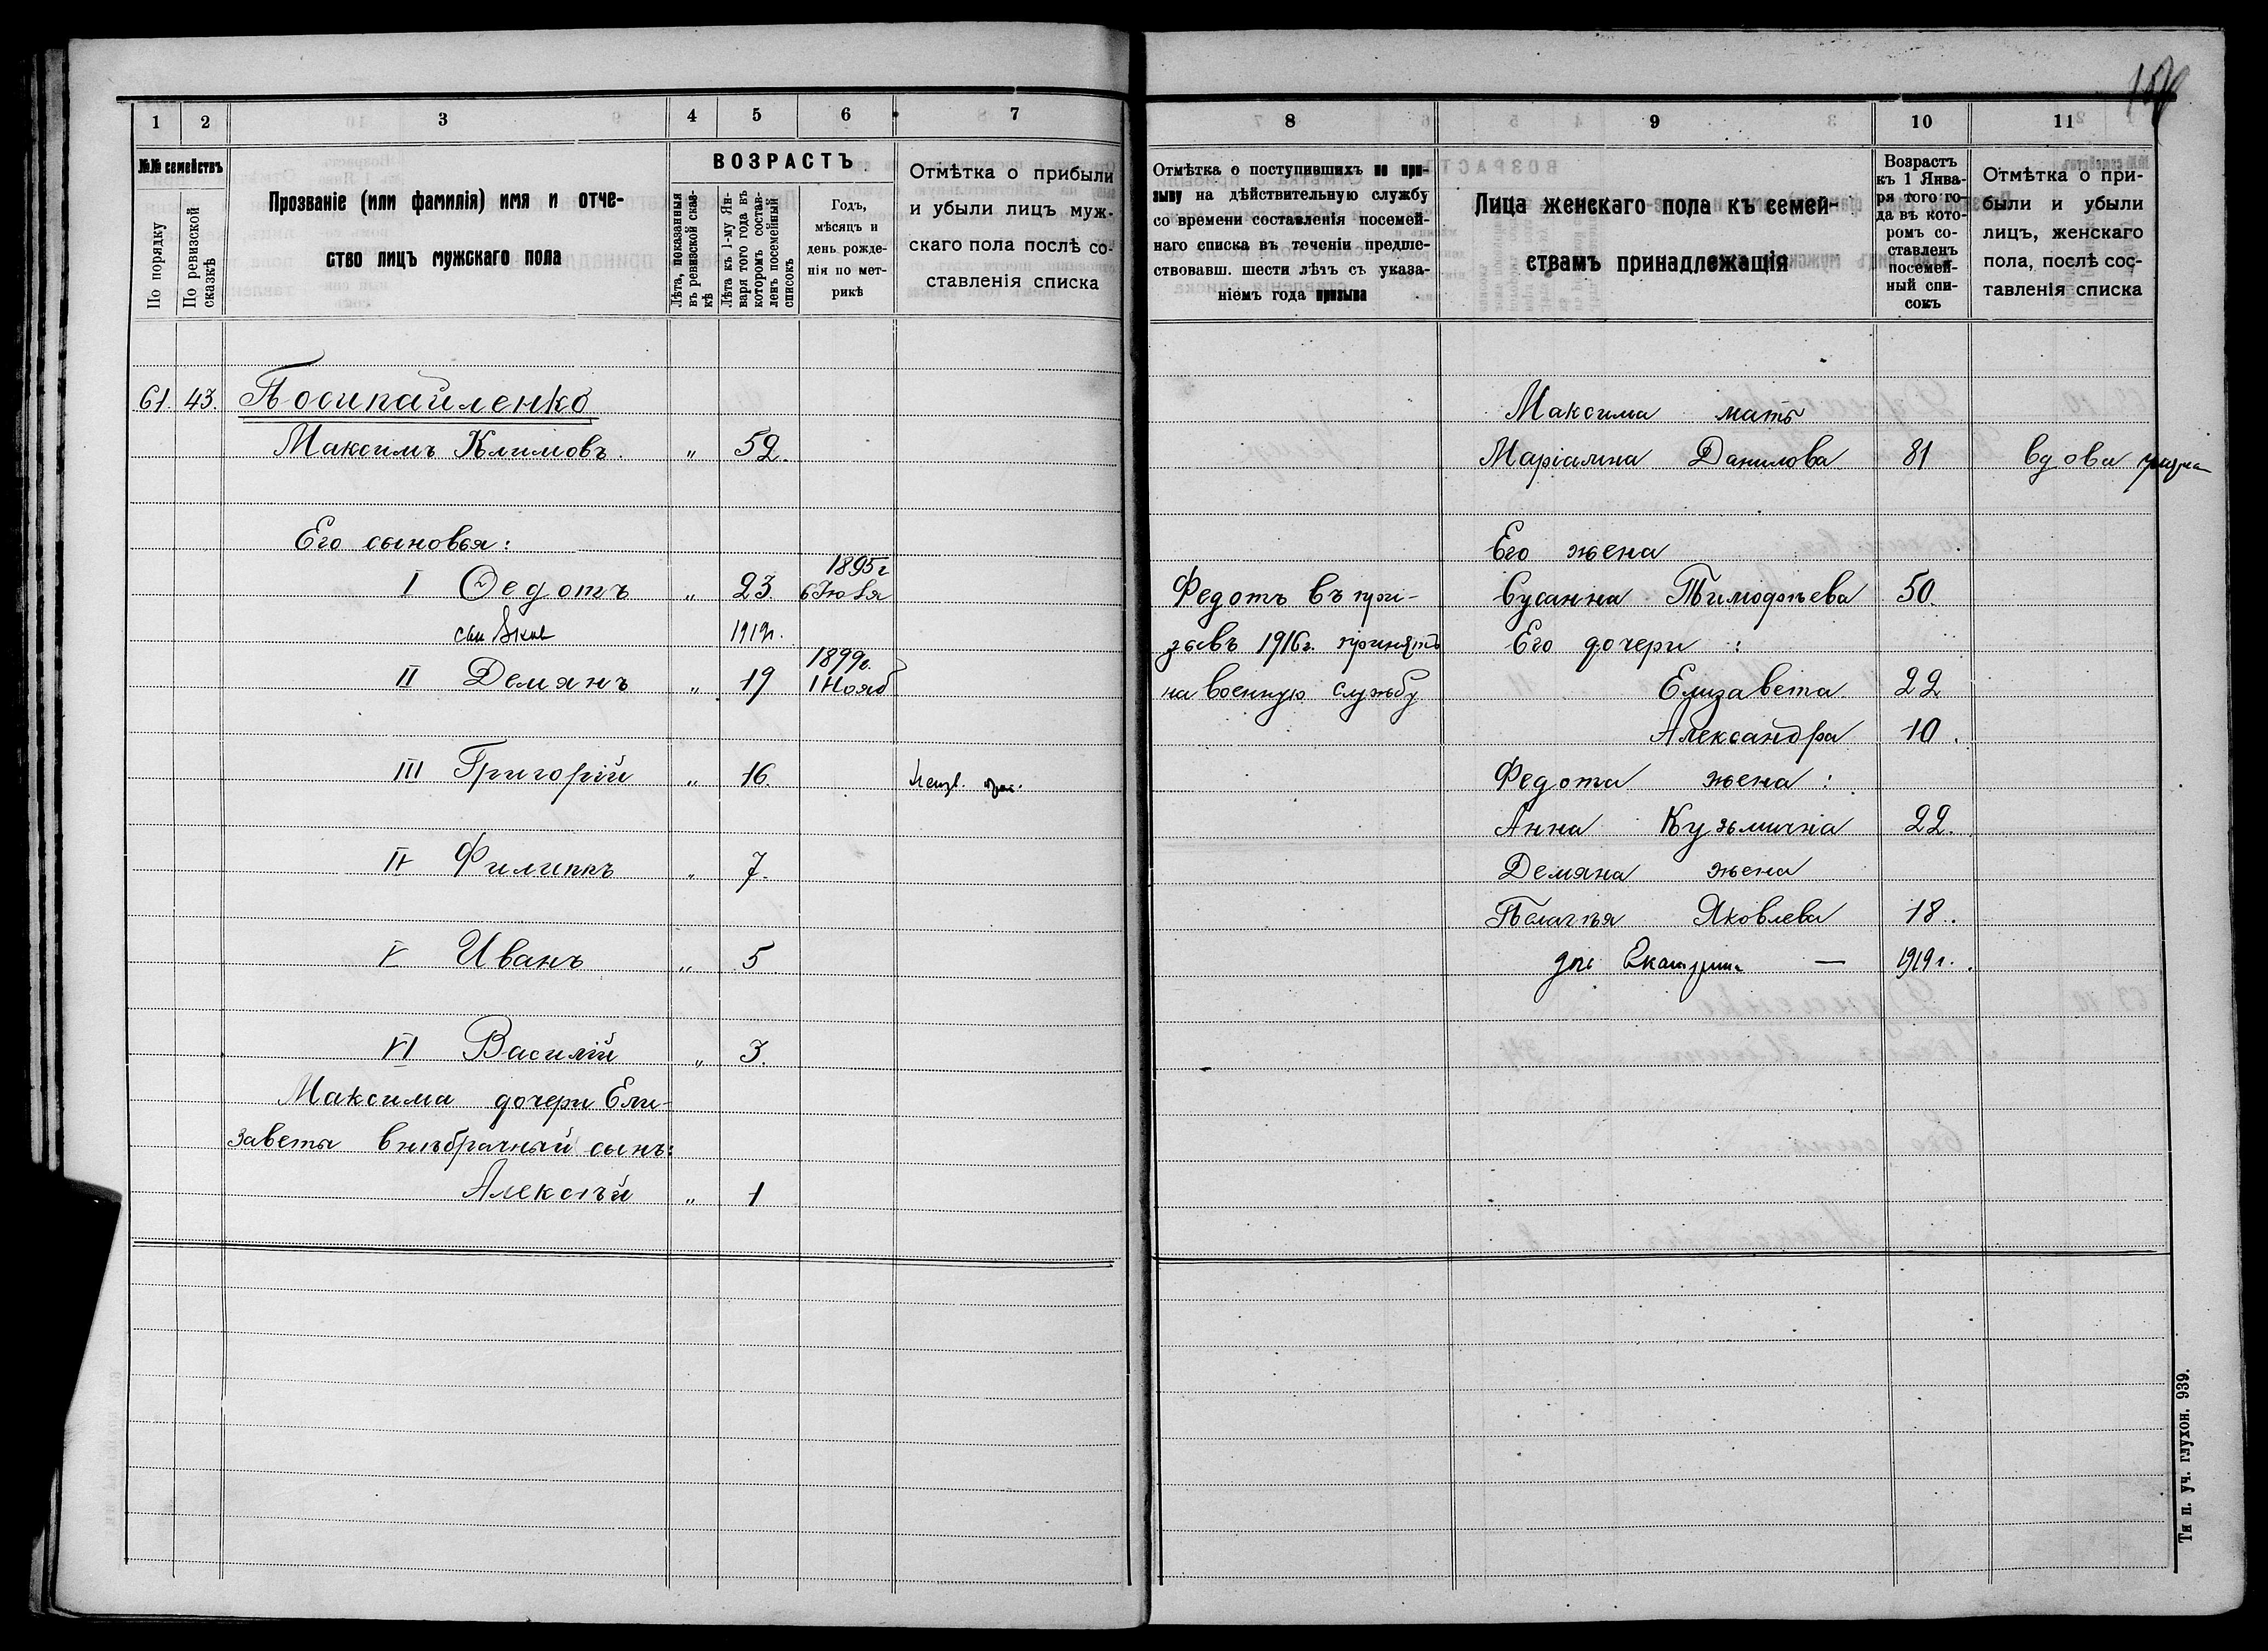 1 2 3 4 5 6 7
№№ семействъ
По порядку
По ревизской сказкѣ
Прозваніе (или фамилія) имя и отче-
ство лицъ мужскаго пола
ВОЗРАСТЪ
Лѣта, показанныя
въ ревизской сказ-
кѣ
Лѣта къ 1-му Ян-
варя того года въ
которомъ состав-
ленъ посемейный
списокъ
Годъ,
мѣсяцъ и
день рожде-
нія по мет-
рикѣ
Отмѣтка о прибыли
и убыли лицъ муж-
скаго пола послѣ со-
ставленія списка
61. 43. Посипайленко
Максимъ Климовъ. " 52.
Его сыновья:
1895г
I Ѳедотъ " 23. 6 Июля
сын Яков 1919г.
1899г.
II Демянъ " 19 1 Нояб
III Григорій " 16.
IV Филиппъ " 7.
V Иванъ " 5
VI Василій " 3.
Максима дочери Ели-
заветы внѣбрачный сынъ:
Алексѣй " 1
8 9 10 11
Отмѣтка о поступившихъ по при-
зыву на дѣйствительную службу
со времени составленія посемей-
наго списка въ теченіи предше-
ствовавш. шести лѣтъ съ указа-
ніемъ года призыва
Лица женскаго пола къ семей-
ствамъ принадлежащія
Возрастъ
къ 1 Янва-
ря того го-
да въ кото-
ромъ со-
ставленъ
посемей-
ный спи-
сокъ
Отмѣтка о при-
были и убыли
лицъ, женскаго
пола, послѣ сос-
тавленія списка
Максима мать
Маріамна Данилова 81 вдова
Его жена
Федотъ въ при- Сусанна Тимофѣева 50.
зывъ 1916г. принятъ Его дочери:
на военную службу Елизавета 22
Александра 10.
Федота жена:
Анна Кузьмична 22.
Демяна жена
Пелагѣя Яковлева 18.
дочь Екатерина — 1919г.
Ти п. уч. глухон. 939.